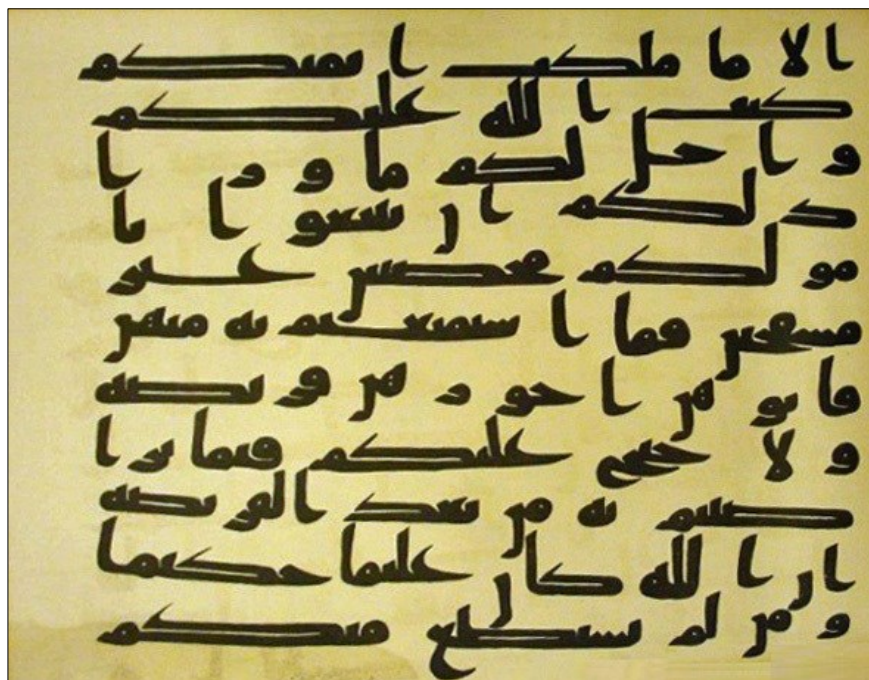 الا ما ملكت ايمنكم
كتب الله عليكم
و احل لكم ما ورا
ذلكم ان تبتغوا با
مولكم محصنين غير
مسفحين فما استمتعتم به منهن
فاتوهن اجورهن فريضة
ولا جنح عليكم فيما ترا
ضيتم به من بعد الفريضة
ان الله كان عليما حكيما
ومن لم يستطع منكم